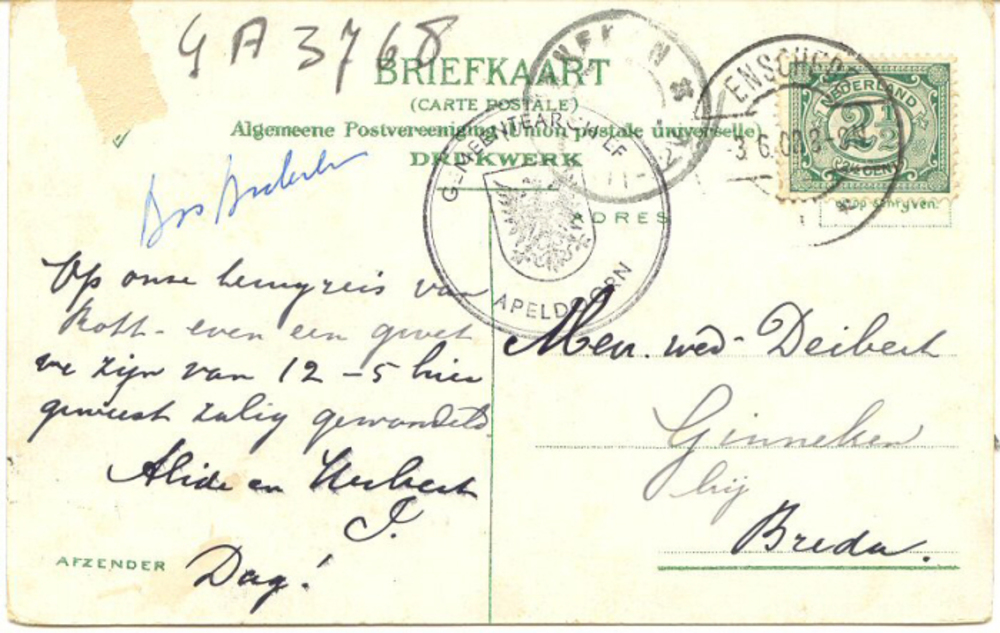 G A 3768
BRIEFKAART
(CARTE POSTALE)
Algemeene Postvereeniging (Union postale universelle)
DRUKWERK
GEMEENTEARCHIEF
APELDOORN
ENSCHEDE
NEDERLAND
2½
ADRES
Op onze
van
Rott - even een groet
we zijn van 12 - 5 hier
geweest zalig gewandeld
Alide en Herbert
J.
Dag!
AFZENDER
Mev. wed. Deibert
Ginneken
bij
Breda.